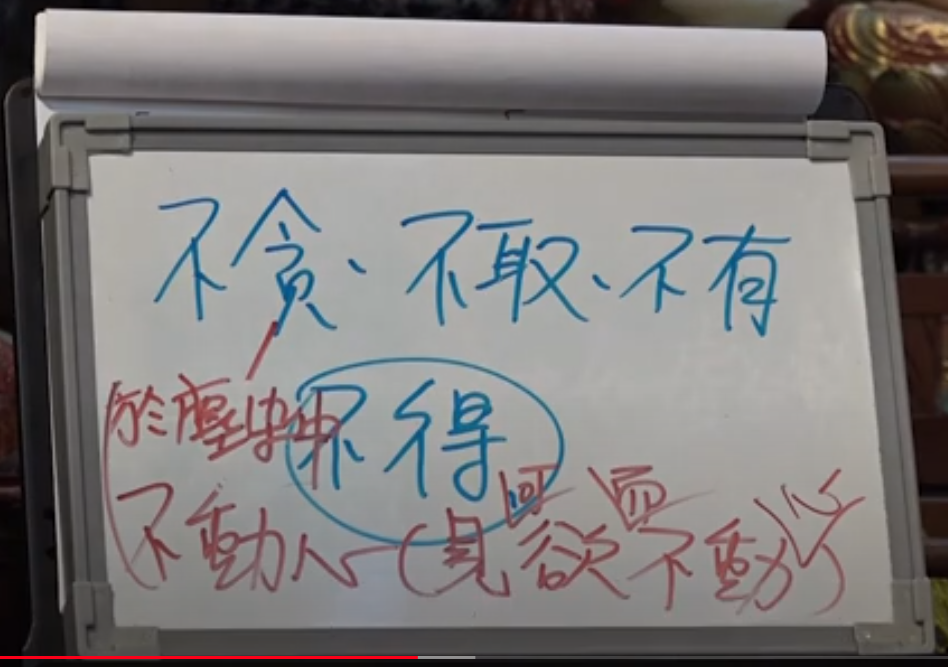 不貪、不取、不有
不得
於塵勞中
不動心(見可欲而心不動)